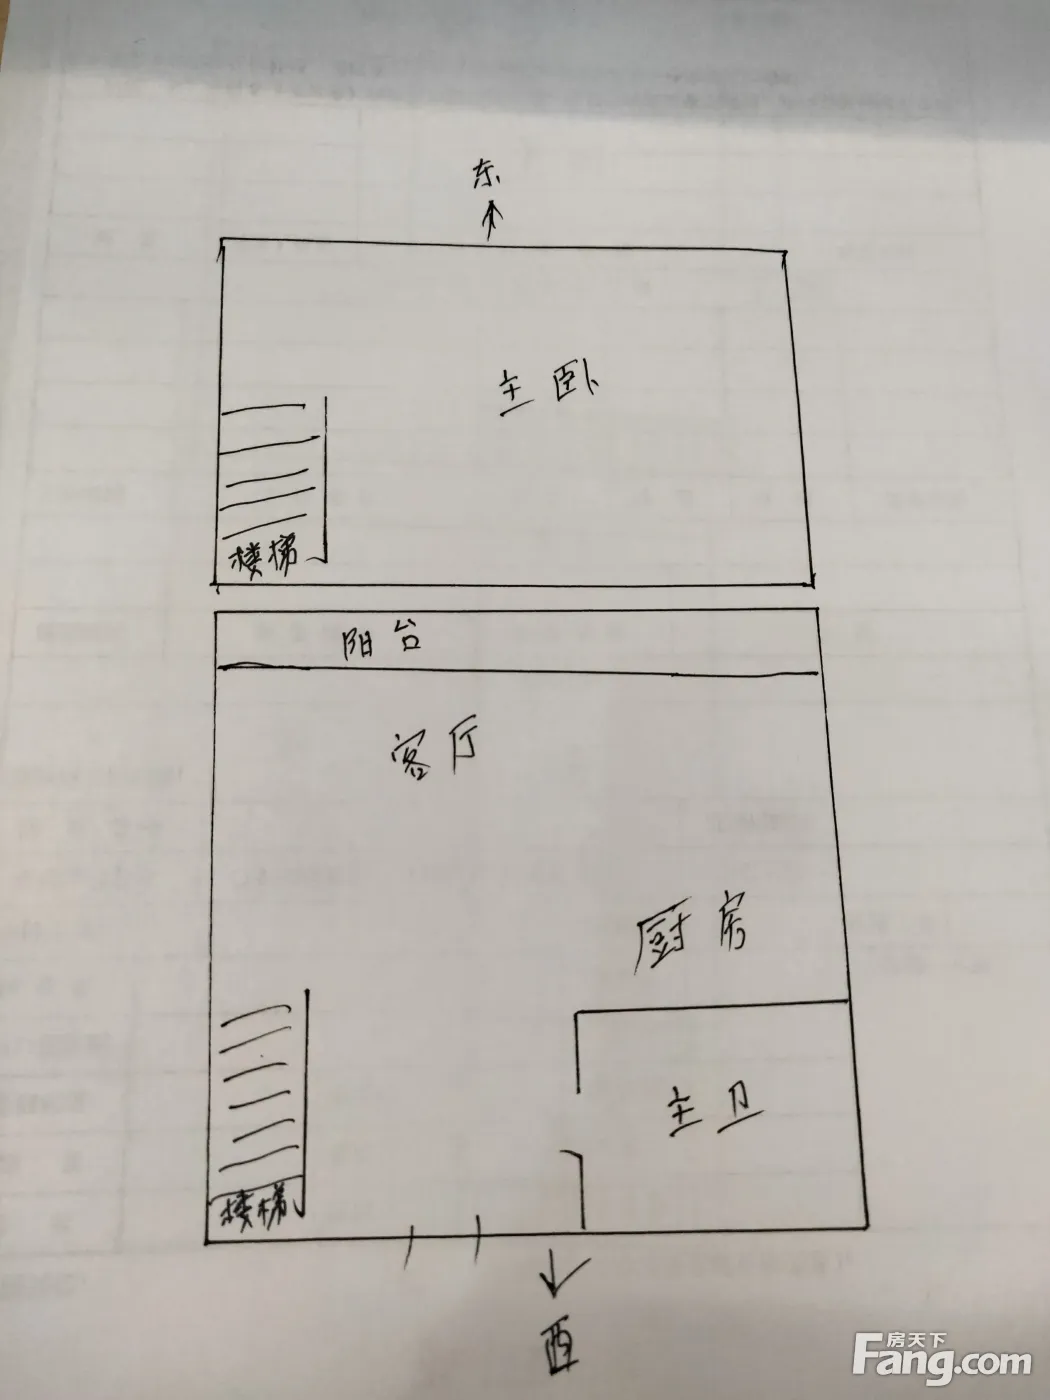 东
主卧
楼梯
阳台
客厅
厨房
主卫
楼梯
西
房天下
Fang.com